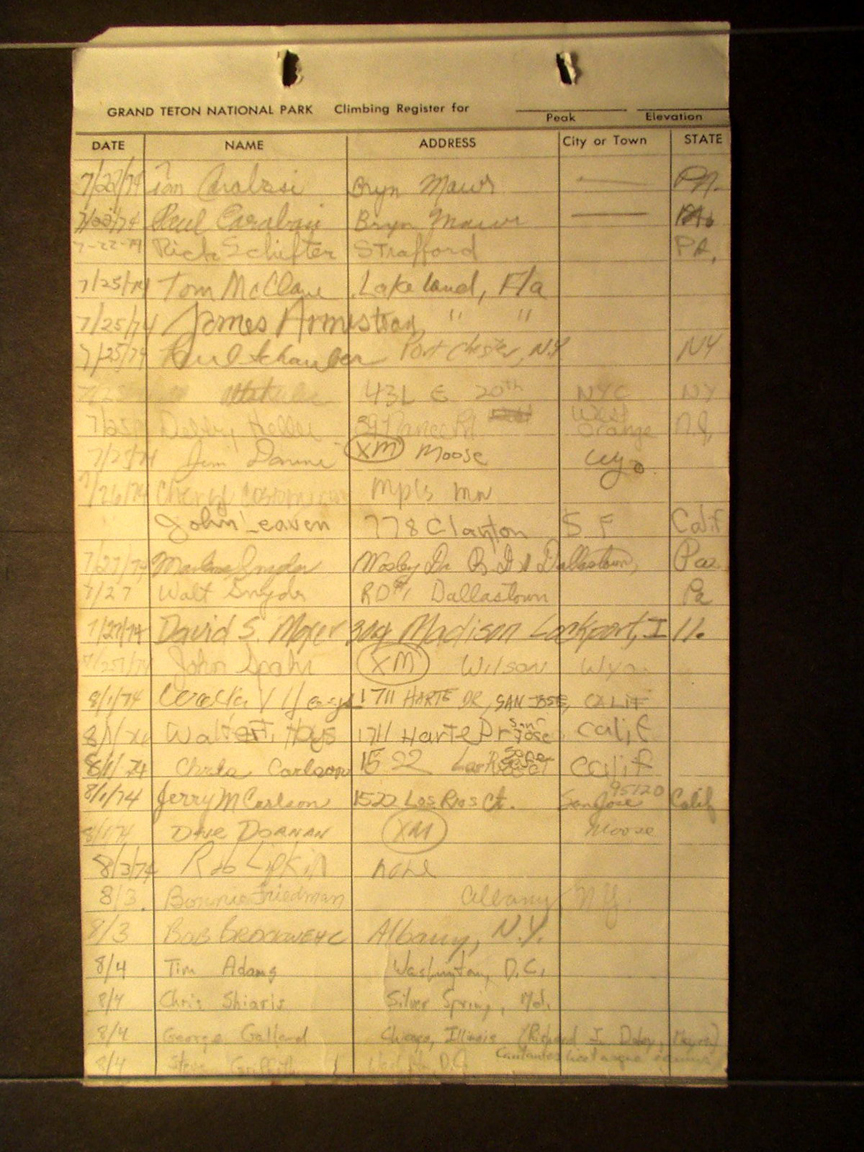 GRAND TETON NATIONAL PARK Climbing Register for
Peak Elevation
DATE NAME ADDRESS City or Town STATE
7/22/74 Tom Carabasi Bryn Mawr — PA.
7/22/74 Paul Carabasi Bryn Mawr —
7-22-74 Rick Schifter Strafford PA.
7/25/74 Tom McClane Lakeland, Fla
7/25/74 James Armistead, " "
7/25/74 Paul Schauber Port Chester, NY NY
431 E 20th NYC NY
7/25 Debby Heller Rd West Orange N.J.
7/27/74 Jim XM Moose Wyo.
7/26/74 Cheryl Mpls Mn
John Leaven 778 Clayton S F Calif
7/27/74 Marlene Snyder Mosby Dr. Dallastown, Pa
7/27 Walt Snyder RD#1 Dallastown Pa
7/27/74 David S. Moyer 309 Madison Lockport, Ill.
7/27/74 John Spahr XM Wilson Wyo
8/1/74 Hays 1711 HARTE DR, SAN JOSE, CALIF
8/1/74 Walter Hays 1711 Harte Dr San Jose Calif
8/1/74 Chris Carlson 1522 Los Rios Calif
8/1/74 Jerry M Carlson 1522 Los Rios Ct. San Jose 95120 Calif
8/1/74 DAVE DORNAN XM Moose
8/3/74 Rob Lipkin none
8/3. Bonnie Friedman Albany NY
8/3 BOB Albany, N.Y.
8/4 Tim Adams Washington, D.C.
8/4 Chris Shiaris Silver Spring, Md.
8/4 George Galland Chicago, Illinois (Richard J. Daley, Mayor)
8/4 Steve Griffith D.C.